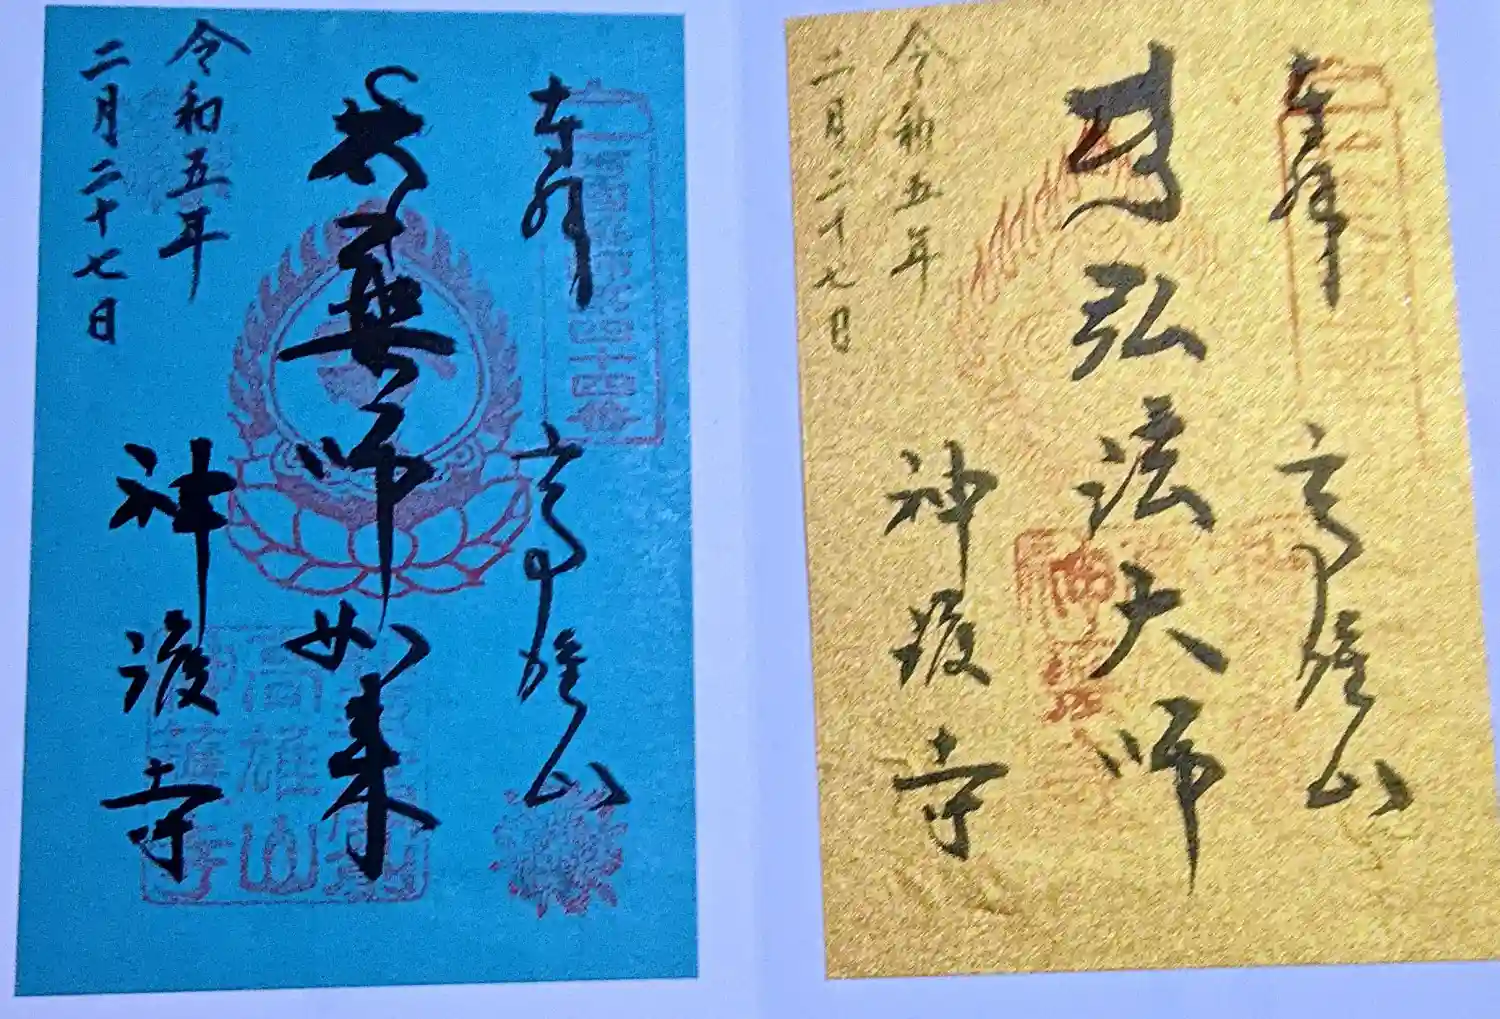 奉拝
高雄山
弘法大師
令和五年
二月二十七日
神護寺
奉拝
高雄山
薬師如来
令和五年
二月二十七日
神護寺
四十四番
高雄山
神護寺